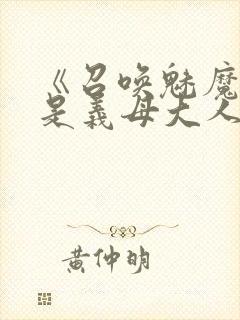 《召唤魅魔
是義母大人
黄仲明